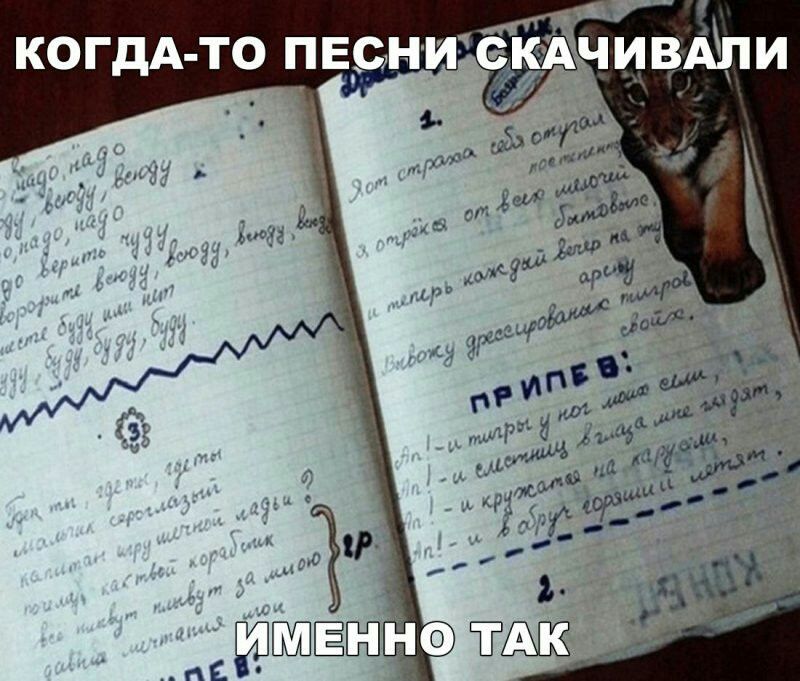 КОГДА-ТО ПЕСНИ СКАЧИВАЛИ
надо, надо
всюду, всюду
надо, надо
верить чуду
всюду, всюду, всюду, всюду
вместе буду или нет
буду, буду, буду, буду.
3
Где ты, где ты, где ты
мальчик сероглазый
капитан игрушечной ладьи?
почему, как твой кораблик
все плывут за мною
давние мечтания мои
2р.
1.
Я от страха себя отучал
постепенно,
Я отрёкся от всех мелочей
бытовых,
и теперь каждый вечер на эту
арену
Вывожу дрессированных тигров
своих.
ПРИПЕВ:
Ап! - и тигры у ног моих сели,
Ап! - и с лестниц в глаза мне глядят,
Ап! - и кружатся на карусели,
Ап! - и в обруч горящий летят.
2.
КОНЕЦ
ИМЕННО ТАК